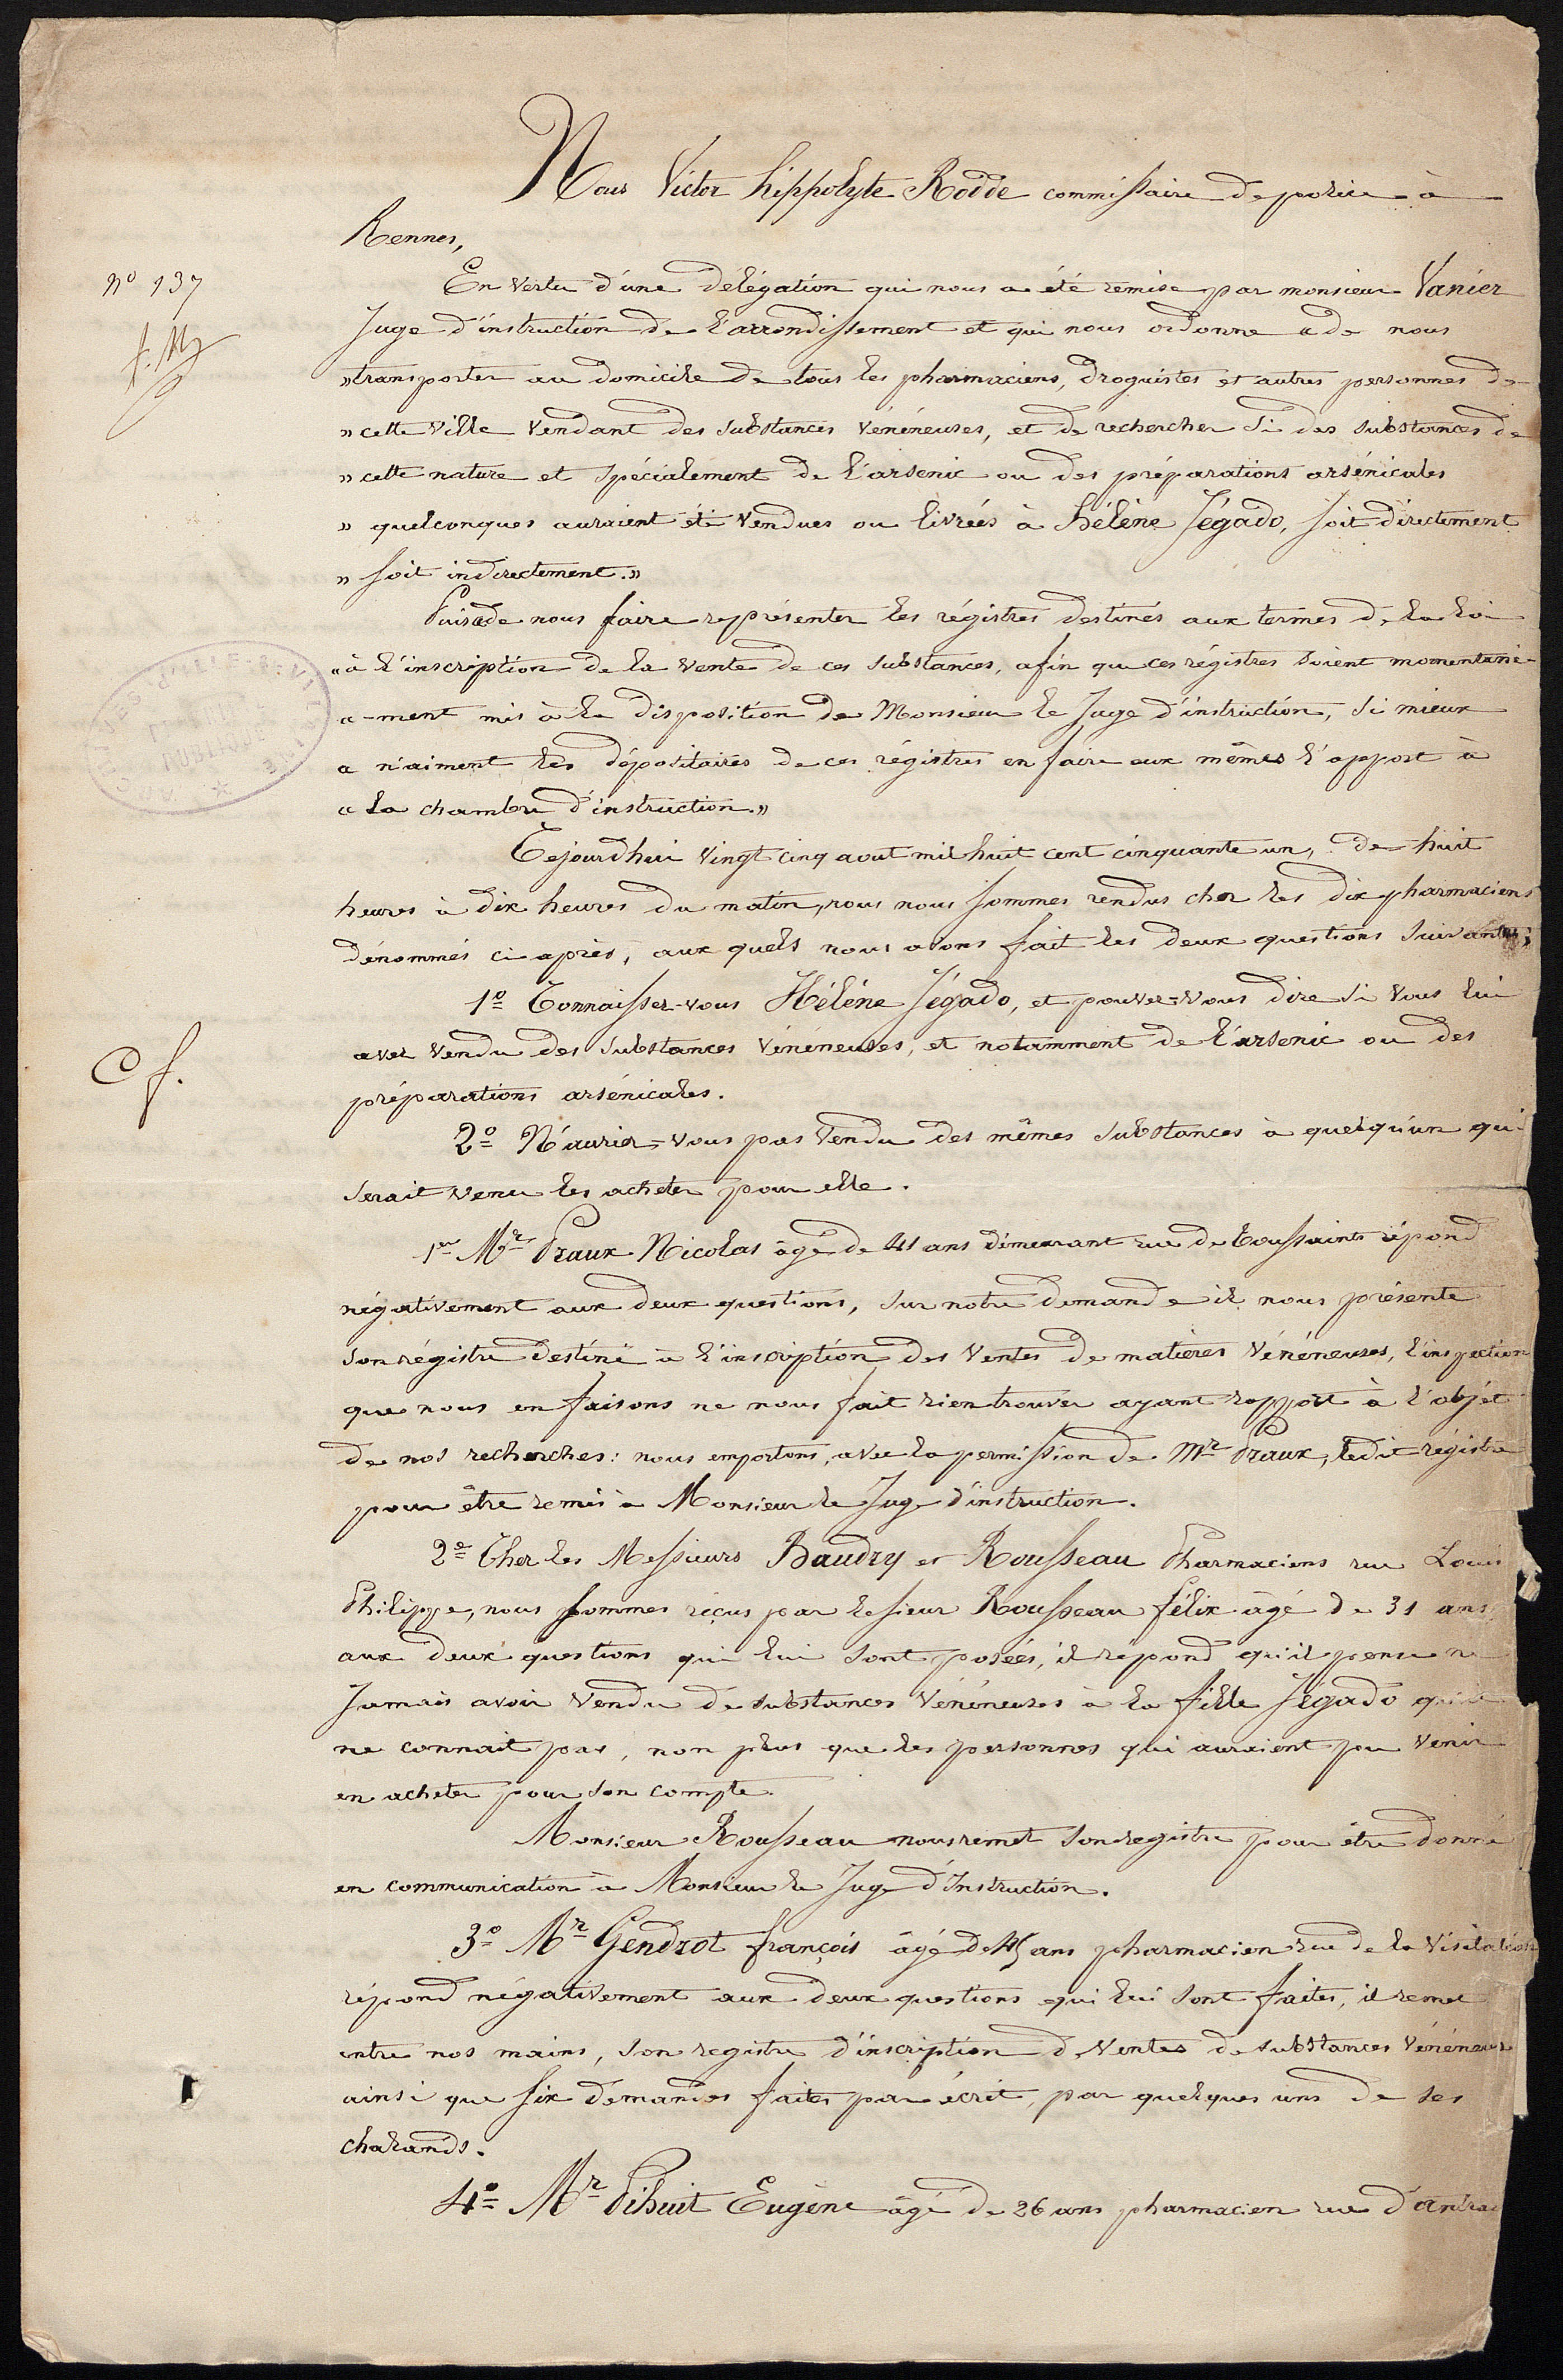 Nous Victor hippolyte Rodde commissaire de police à
Rennes,
nº 137
En vertu d'une délégation qui nous a été remise par monsieur Vanier
Juge d'instruction de l'arrondissement et qui nous ordonne « de nous
» transporter au domicile de tous les pharmaciens, droguistes et autres personnes de
» cette ville vendant des substances vénéneuses, et de rechercher si des substances de
» cette nature et spécialement de l'arsenic ou des préparations arsénicales
» quelconques auraient été vendues ou livrées à Hélène Jégado, soit directement
» soit indirectement. »
Puis « de nous faire représenter les régistres destinés aux termes de la loi
« à l'inscription de la vente de ces substances, afin que ces régistres soient momentané-
« -ment mis à la disposition de Monsieur le Juge d'instruction, si mieux
« n'aiment les dépositaires de ces régistres en faire eux mêmes l'apport à
« la chambre d'instruction. »
Cejourdhui vingt cinq aout mil huit cent cinquante un, de huit
heures à dix heures du matin, nous nous sommes rendus chez les dix pharmaciens
dénommés ci après, aux quels nous avons fait les deux questions suivantes;
1º Connaissez-vous Hélène Jégado, et pouvez-vous dire si vous lui
avez vendu des substances vénéneuses, et notamment de l'arsenic ou des
Cf.
préparations arsénicales.
2º N'auriez-vous pas vendu des mêmes substances à quelqu'un qui
serait venu les acheter pour elle.
1er Mr Praux Nicolas âgé de 41 ans démeurant rue de Toussaints répond
négativement aux deux questions, sur notre demande il nous présente
son régistre destiné à l'inscription des ventes de matières vénéneuses, l'inspection
que nous en faisons ne nous fait rien trouver ayant rapport à l'objet
de nos recherches: nous emportons, avec la permission de Mr Praux, ledit régistre
pour être remis à Monsieur le Juge d'instruction.
2e Chez les Messieurs Baudry et Rousseau Pharmaciens rue Louis
Philippe, nous sommes reçus par le sieur Rousseau félix âgé de 31 ans
aux deux questions qui lui sont posées, il répond qu'il pense ne
Jamais avoir vendu de substances vénéneuses à la fille Jégado qu'il
ne connait pas, non plus que les personnes qui auraient pu venir
en acheter pour son compte.
Monsieur Rousseau nous remet son registre pour être donné
en communication à Monsieur le Juge d'Instruction.
3º Mr Gendrot françois âgé de 45 ans pharmacien rue de la Visitation
répond négativement aux deux questions qui lui sont faites, il remet
entre nos mains, son registre d'inscription de ventes de substances vénéneuses
ainsi que six démandes faites par écrit, par quelques uns de ses
chalands.
4º Mr Pihuit Eugène âgé de 26 ans pharmacien rue d'antrai